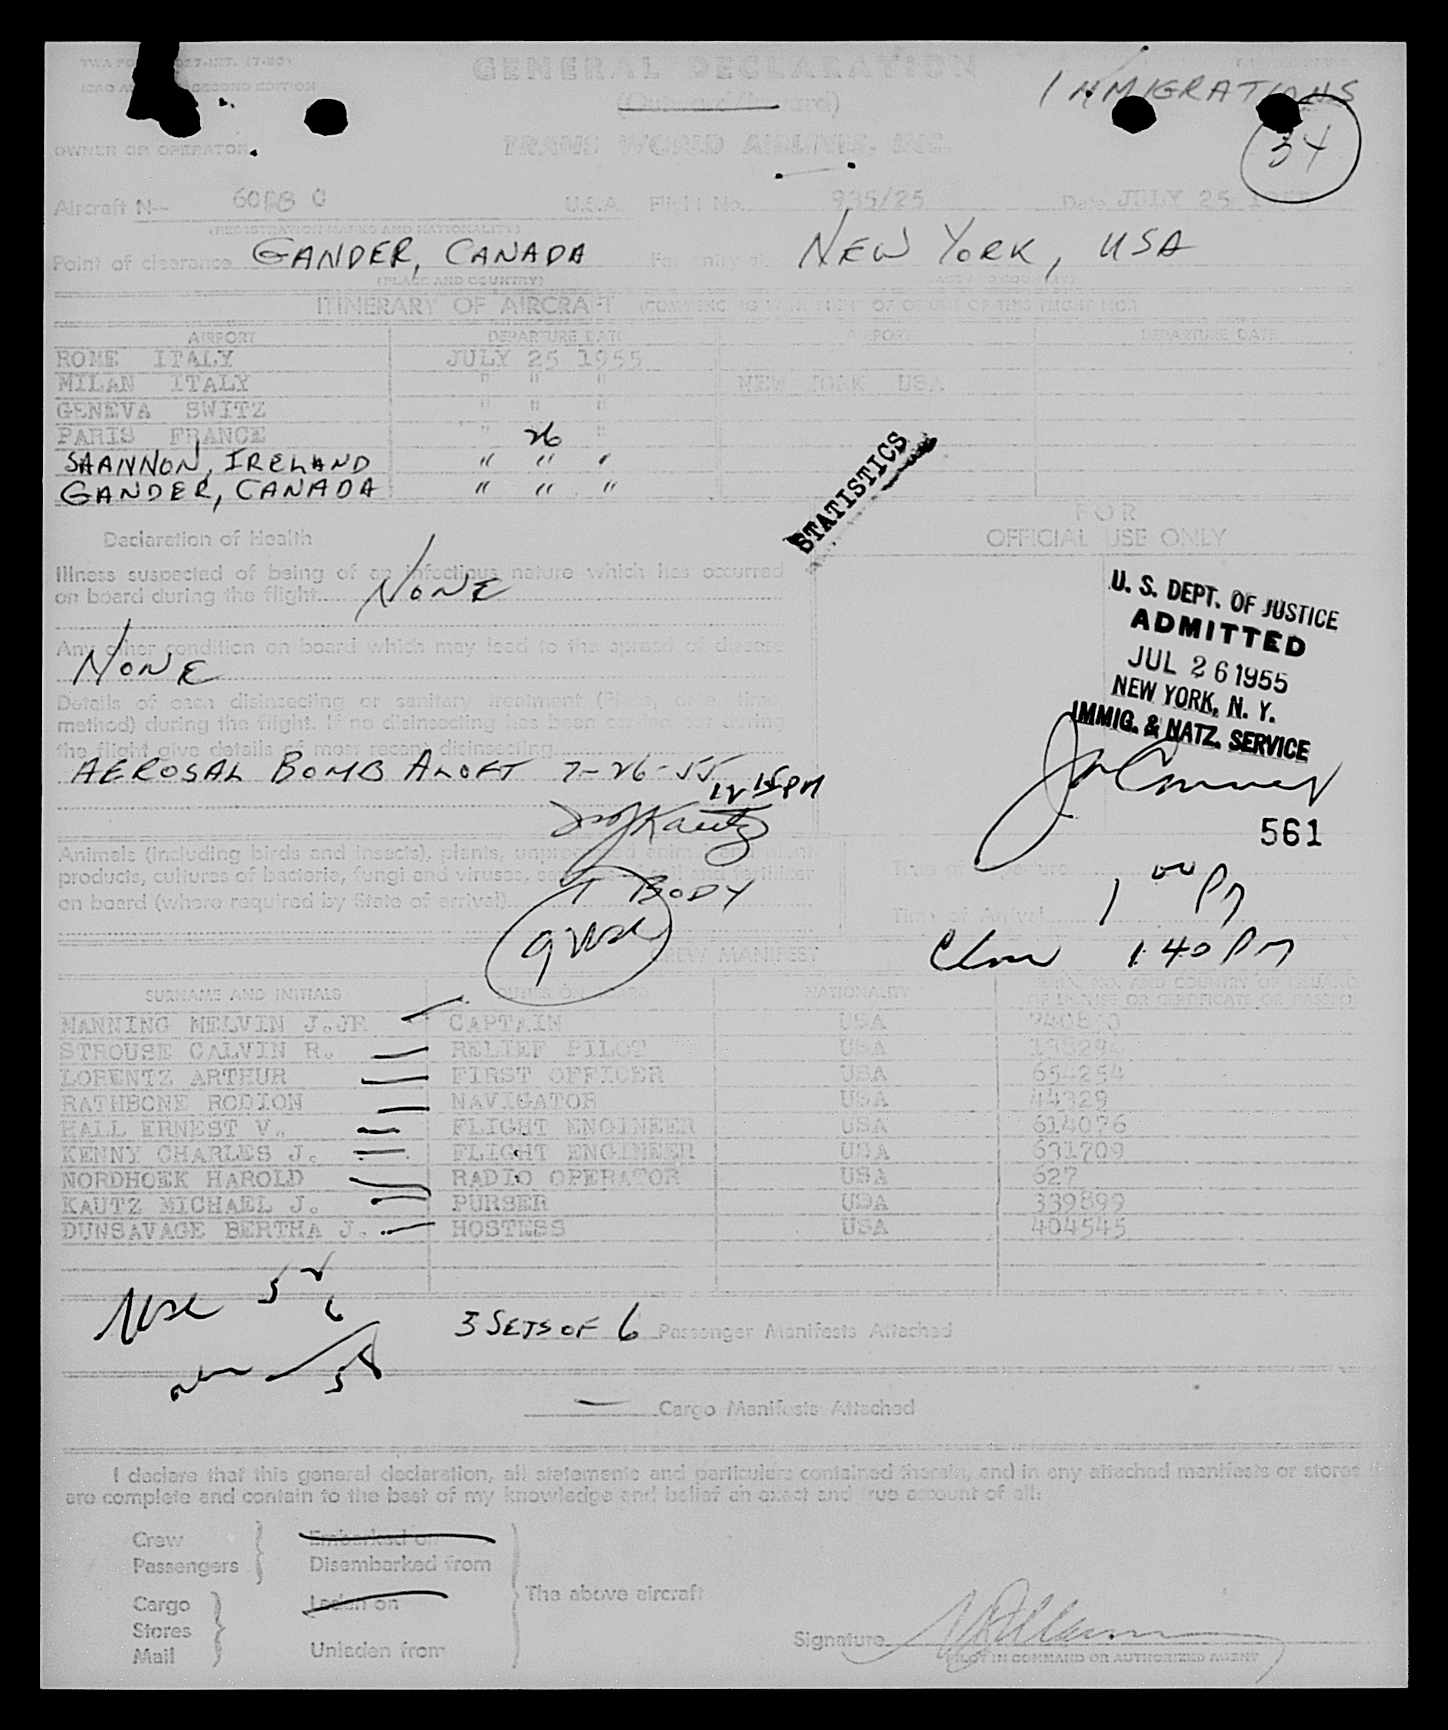 GENERAL DECLARATION
IMMIGRATIONS
(Outward/Inward)
34
OWNER OR OPERATOR
TRANS WORLD AIRLINES, INC.
Aircraft N— C U.S.A. Flight No. 935/25 Date JULY 25
(REGISTRATION MARKS AND NATIONALITY)
Point of clearance GANDER, CANADA For entry at NEW YORK, USA
(PLACE AND COUNTRY)
ITINERARY OF AIRCRAFT
AIRPORT DEPARTURE DATE AIRPORT DEPARTURE DATE
ROME ITALY JULY 25 1955
MILAN ITALY " " " NEW YORK USA
GENEVA SWITZ " " "
PARIS FRANCE " 26 "
SHANNON, IRELAND " " "
GANDER, CANADA " " "
STATISTICS
FOR
OFFICIAL USE ONLY
Declaration of Health
Illness suspected of being of an infectious nature which has occurred
on board during the flight NONE
Any other condition on board which may lead to the spread of disease
NONE
Details of each disinsecting or sanitary treatment (Place, date, time,
method) during the flight. If no disinsecting has been carried out during
the flight give details of most recent disinsecting
AEROSAL BOMB ALOFT 7-26-55
12 15 PM
U. S. DEPT. OF JUSTICE
ADMITTED
JUL 26 1955
NEW YORK, N. Y.
IMMIG. & NATZ. SERVICE
561
Animals (including birds and insects), plants, unprocessed animal and plant
products, cultures of bacteria, fungi and viruses, and fertilizer
on board (where required by State of arrival)
1 BODY
9 usc
Time of Departure
Time of Arrival 1 00 PM
1 40 PM
CREW MANIFEST
SURNAME AND INITIALS DUTIES ON BOARD NATIONALITY
MANNING MELVIN J.JR CAPTAIN USA
STROUSE CALVIN R. RELIEF PILOT USA
LORENTZ ARTHUR FIRST OFFICER USA 654254
RATHBONE RODION NAVIGATOR USA 44329
HALL ERNEST V. FLIGHT ENGINEER USA 614076
KENNY CHARLES J. FLIGHT ENGINEER USA 631709
NORDHOEK HAROLD RADIO OPERATOR USA 627
KAUTZ MICHAEL J. PURSER USA 339899
DUNSAVAGE BERTHA J. HOSTESS USA 404545
usc 52
6
58
3 SETS OF 6 Passenger Manifests Attached
Cargo Manifests Attached
I declare that this general declaration, all statements and particulars contained therein, and in any attached manifests or stores
are complete and contain to the best of my knowledge and belief an exact and true account of all:
Crew Embarked on
Passengers Disembarked from
The above aircraft
Cargo Laden on
Stores
Mail Unladen from
Signature
PILOT IN COMMAND OR AUTHORIZED AGENT